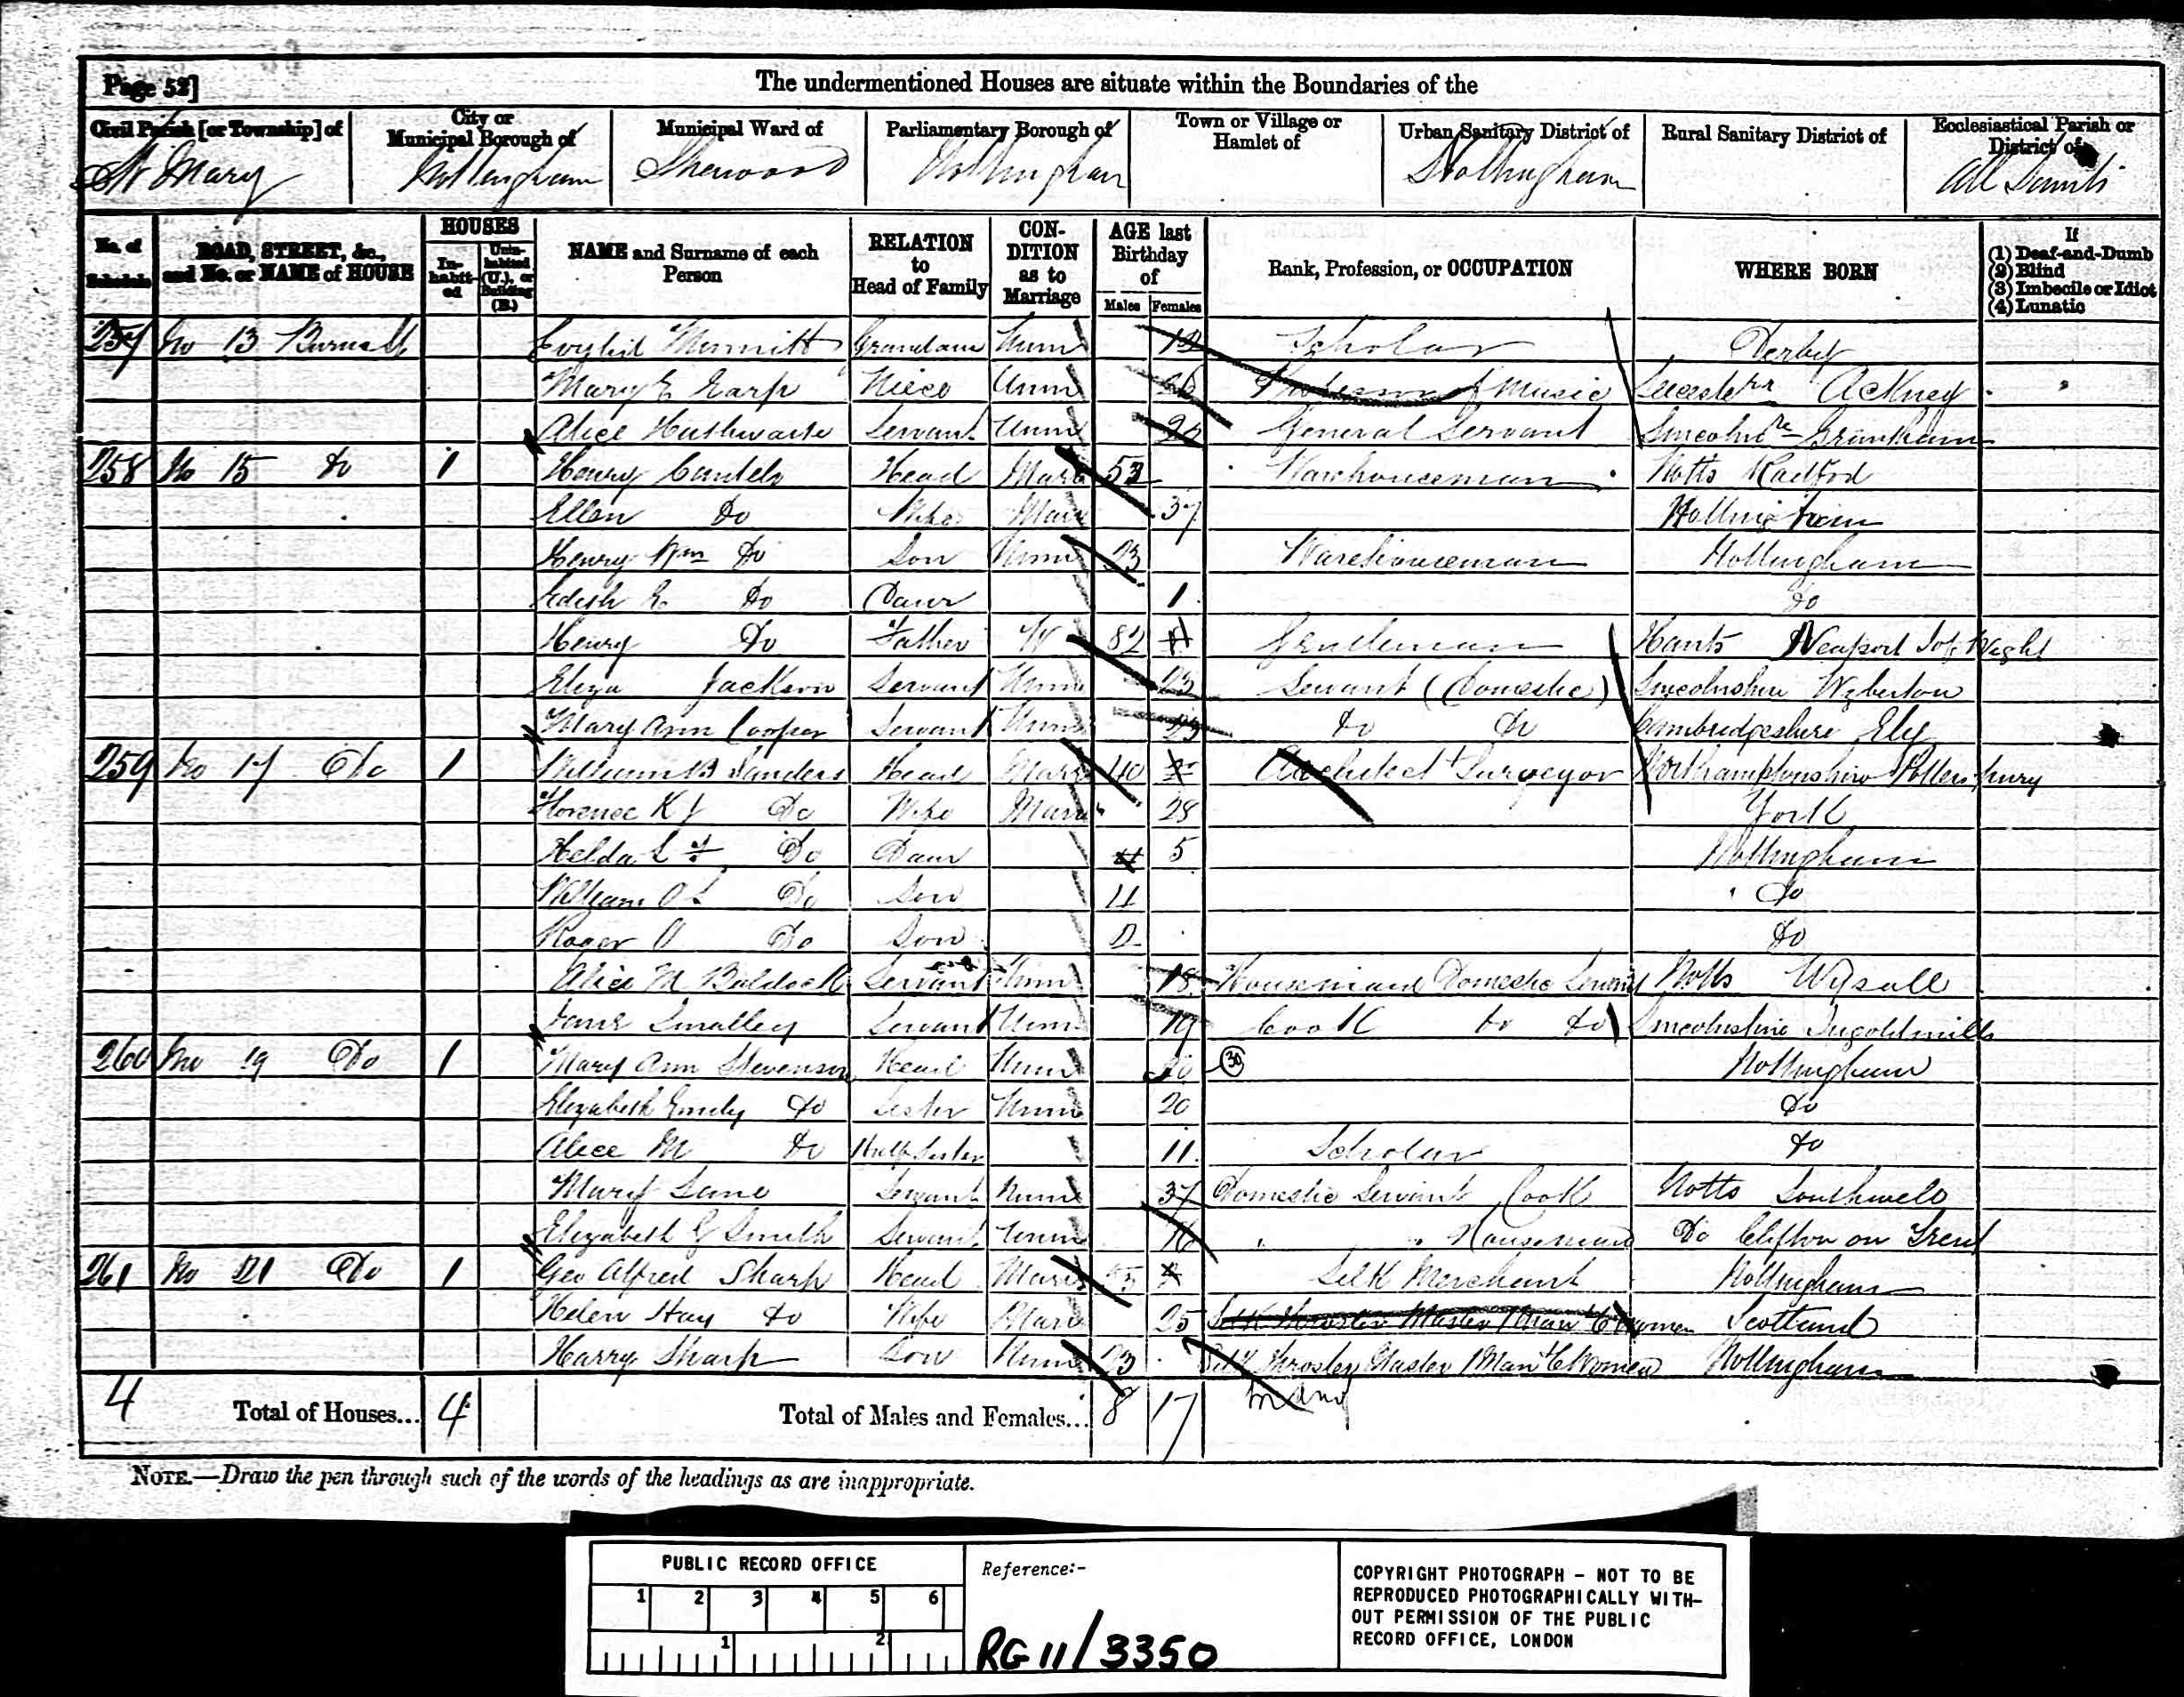 Page 52]
The undermentioned Houses are situate within the Boundaries of the
Civil Parish [or Township] of | City or Municipal Borough of | Municipal Ward of | Parliamentary Borough of | Town or Village or Hamlet of | Urban Sanitary District of | Rural Sanitary District of | Ecclesiastical Parish or District of
St Mary | Nottingham | Sherwood | Nottingham | Nottingham | All Saints
No. of Schedule | ROAD, STREET, &c., and No. or NAME of HOUSE | HOUSES In-habit-ed | Unin-habited (U.), or Building (B.) | NAME and Surname of each Person | RELATION to Head of Family | CON-DITION as to Marriage | AGE last Birthday of Males | Females | Rank, Profession, or OCCUPATION | WHERE BORN | If (1) Deaf-and-Dumb (2) Blind (3) Imbecile or Idiot (4) Lunatic
257 No 13 Burns St Unm Scholar Derby
Mary E Earp Niece Unm of Music
Alice Servant Unm General Servant Grantham
258 No 15 Do 1 Henry Head Marr 53 Warehouseman Notts Radford
Ellen Do Wife Marr 37 Nottingham
Henry Wm Do Son Unm 23 Warehouseman Nottingham
Edith E Do Daur 1 Do
Henry Do Father W 82 Gentleman Hants Newport I of Wight
Eliza Jackson Servant Unm 23 Servant (Domestic) Lincolnshire Wyberton
Mary Ann Cooper Servant Unm Do Do Cambridgeshire Ely
259 No 17 Do 1 William B Sanders Head Marr 40 Architect + Surveyor Northamptonshire
Florence K J Do Wife Marr 28 York
Do Daur 5 Nottingham
William O S Do Son 4 Do
Roger O Do Son 2 Do
Alice M Baldock Servant Unm 18 Housemaid Domestic Servant Notts Wysall
Jane Smalley Servant Unm 19 Cook Do Do Lincolnshire Ingoldmills
260 No 19 Do 1 Mary Ann Stevenson Head Unm 30 Nottingham
Elizabeth Emily Do Sister Unm 20 Do
Alice M Do Half Sister 11 Scholar Do
Mary Lane Servant Unm 37 Domestic Servant Cook Notts Southwell
Elizabeth G Smith Servant Unm 16 " " Housemaid Do Clifton on Trent
261 No 21 Do 1 Geo Alfred Sharp Head Marr Silk Merchant Nottingham
Helen Hay Do Wife Marr 25 Silk Throster Master 1 Man 6 Women Scotland
Harry Sharp Son Unm 23 Silk Throster Master 1 Man 6 Women Nottingham
4 Total of Houses... 4 Total of Males and Females... 8 17
NOTE.—Draw the pen through such of the words of the headings as are inappropriate.
PUBLIC RECORD OFFICE
1 2 3 4 5 6
1 2
Reference:-
RG 11/3350
COPYRIGHT PHOTOGRAPH - NOT TO BE
REPRODUCED PHOTOGRAPHICALLY WITH-
OUT PERMISSION OF THE PUBLIC
RECORD OFFICE, LONDON